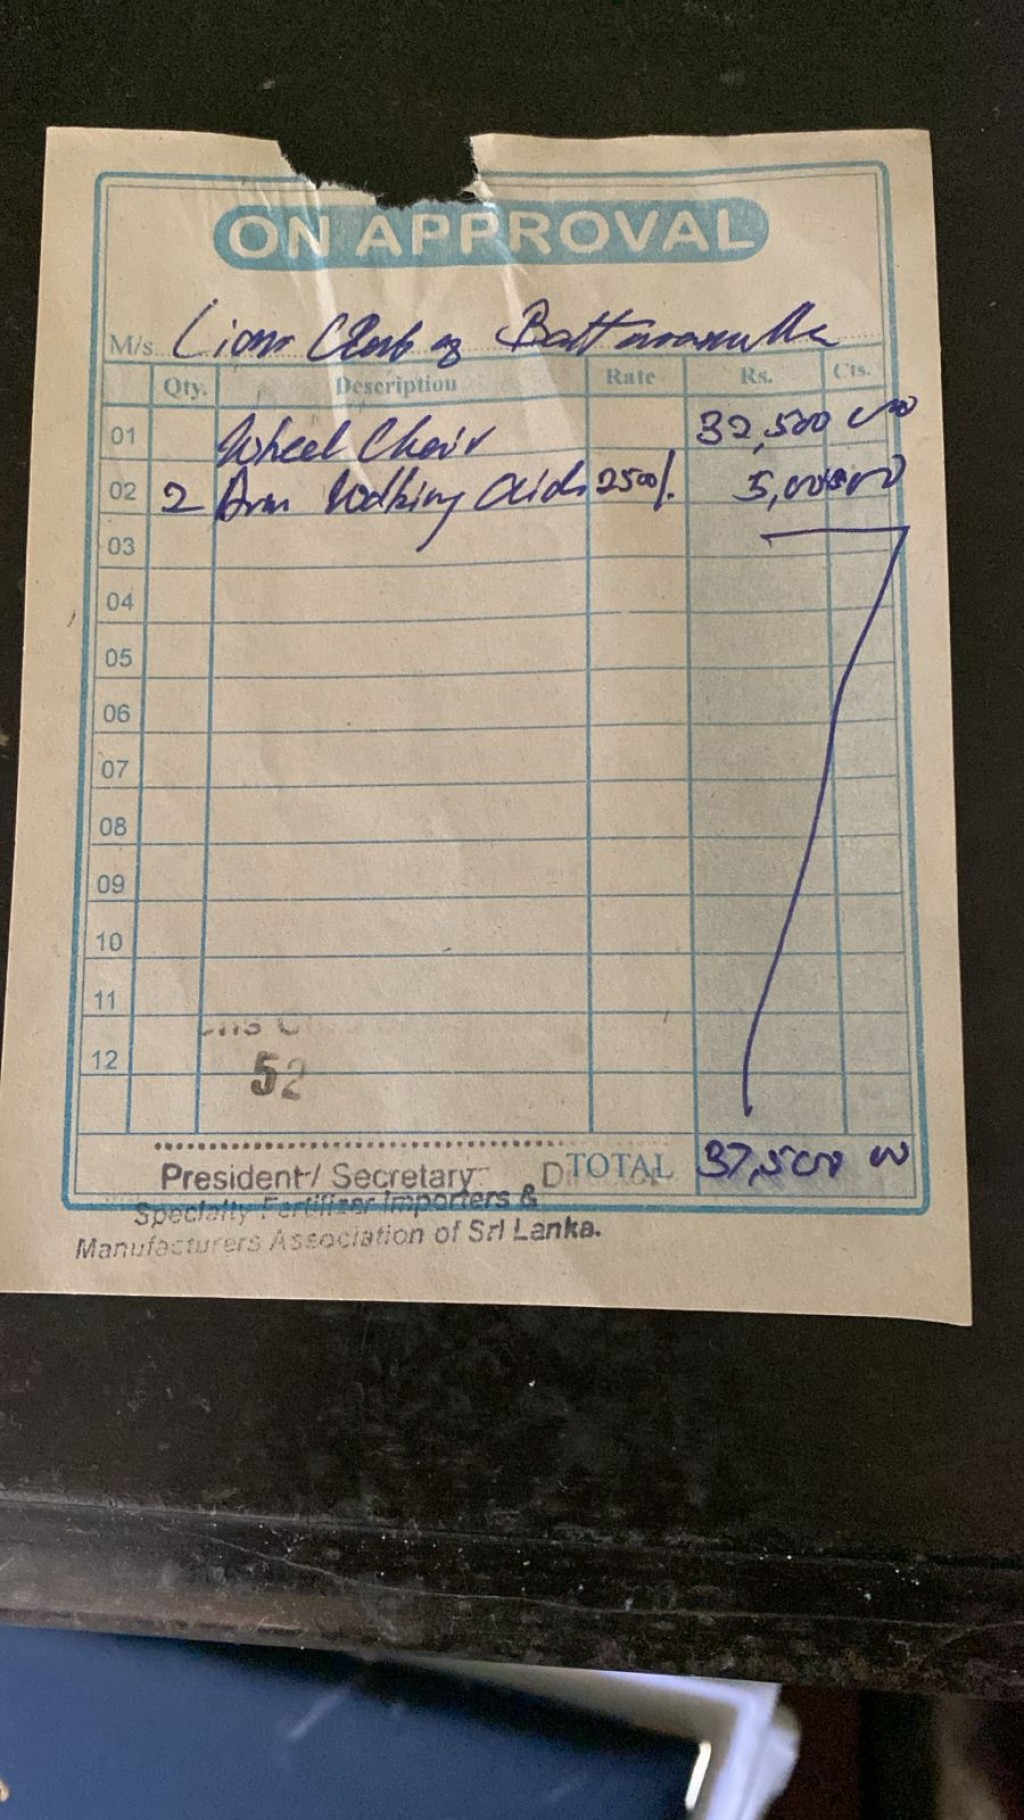 ON APPROVAL
M/s. Lions Club of Battaramulla
Qty. Description Rate Rs. Cts.
01 Wheel Chair 32,500 00
02 2 Arm Walking Aids 2500/. 5,000 00
03
04
05
06
07
08
09
10
11
12
52
TOTAL 37,500 00
President / Secretary
Specialty Fertilizer Importers &
Manufacturers Association of Sri Lanka.